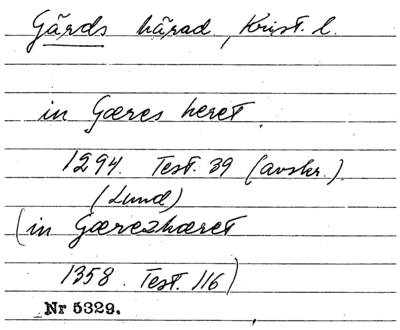 Gärds härad, Krist. l.
in Gæres heret.
1294. Test. 39 (avskr.)
(Lund)
(in Gærezhæret
1358. Test. 116)
Nr 5329.